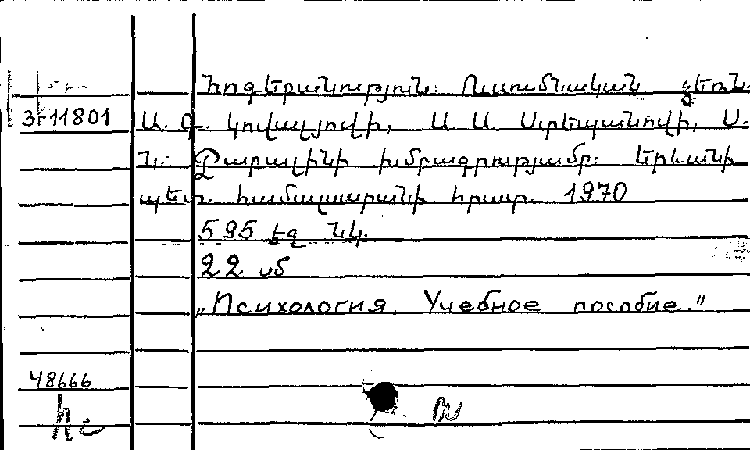 Հոգեբանություն: Ուսումնական ձեռն.
3Г11801 Ա. Գ. Կովալյովի, Ա. Ա. Ստեպանովի, Ս.
Ն. Շաբալինի խմբագրությամբ: Երևանի
պետ. համալսարանի հրատ. 1970
595 էջ նկ.
22 սմ
„Психология. Учебное пособие."
48666